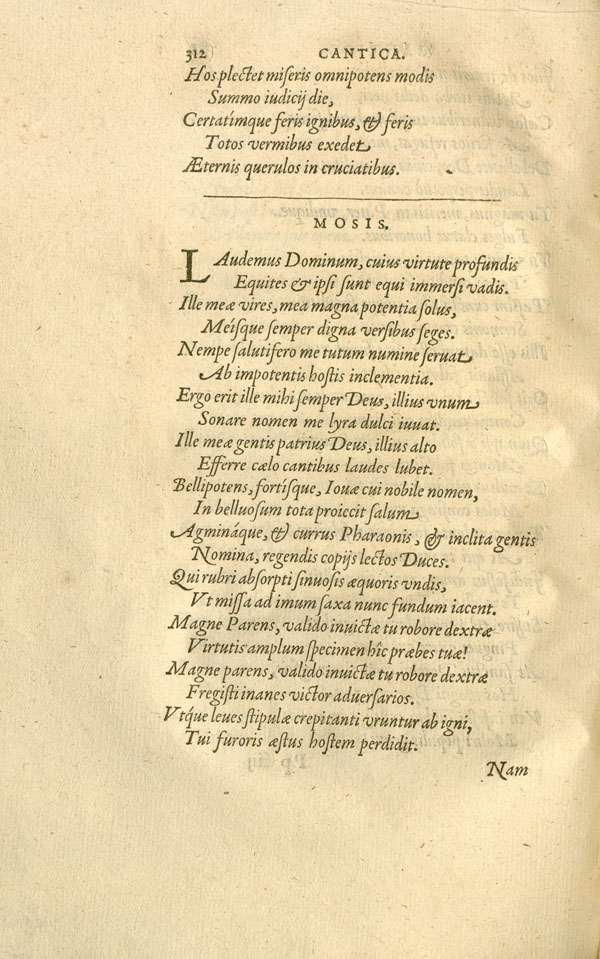 312 CANTICA.
Hos plectet miseris omnipotens modis
Summo iudicij die,
Certatímque feris ignibus, & feris
Totos vermibus exedet
Æternis querulos in cruciatibus.
MOSIS.
LAudemus Dominum, cuius virtute profundis
Equites & ipsi sunt equi immersi vadis.
Ille meæ vires, mea magna potentia solus,
Meísque semper digna versibus seges.
Nempe salutifero me tutum numine seruat
Ab impotentis hostis inclementia.
Ergo erit ille mihi semper Deus, illius vnum
Sonare nomen me lyra dulci iuuat.
Ille meæ gentis patrius Deus, illius alto
Efferre cælo cantibus laudes lubet.
Bellipotens, fortísque, Iouæ cui nobile nomen,
In belluosum tota proiecit salum
Agmináque, & currus Pharaonis, & inclita gentis
Nomina, regendis copijs lectos Duces.
Qui rubri absorpti sinuosis æquoris vndis,
Vt missa ad imum saxa nunc fundum iacent.
Magne Parens, valido inuictæ tu robore dextræ
Virtutis amplum specimen hîc præbes tuæ!
Magne parens, valido inuictæ tu robore dextræ
Fregisti inanes victor aduersarios.
Vtq́ue leues stipulæ crepitanti vruntur ab igni,
Tui furoris æstus hostem perdidit.
Nam